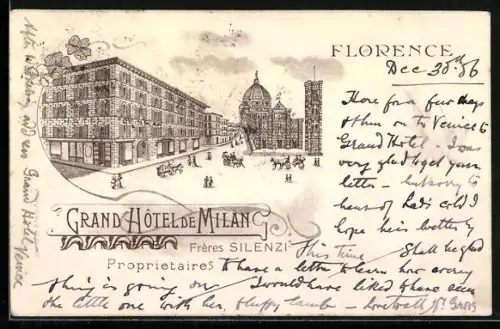 FLORENCE
Dec 30th 06
Here for a few days
then on to Venice to
Grand Hotel - I was
very glad to get your
letter - but sorry to
hear of bad cold I
hope he is better by
this time Shall be glad
to have a letter to learn how every
thing is going on I would have liked to have seen
the little one with her fluffy lamb - Love to all
GRAND HÔTEL DE MILAN
Frères SILENZI
Proprietaires
Grand Hotel
Venice